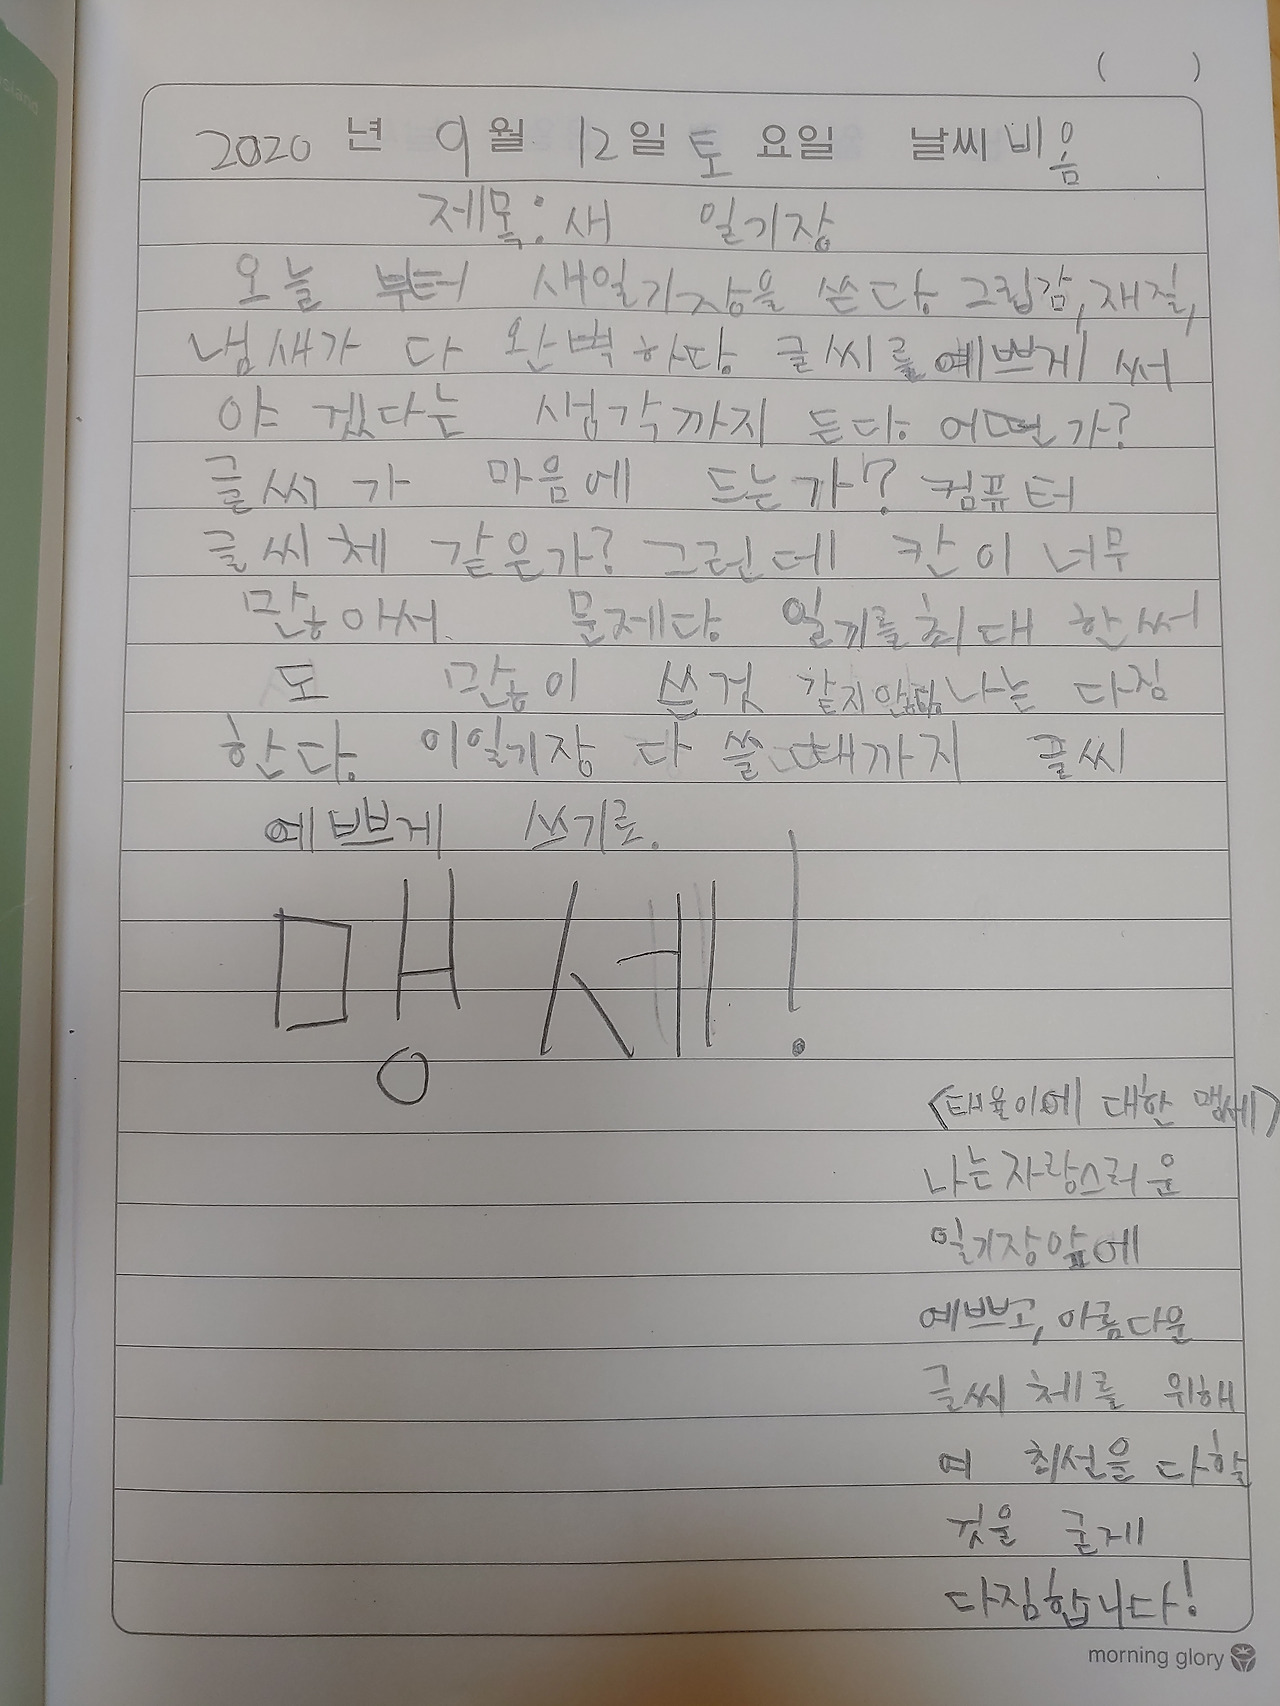 ( )
2020 년 9월 12일 토 요일 날씨 비옴
제목: 새 일기장
오늘 부터 새일기장을 쓴다. 그립감, 재질,
냄새가 다 완벽하다. 글씨를 예쁘게 써
야 겠다는 생각까지 든다. 어떤가?
글씨가 마음에 드는가? 컴퓨터
글씨체 같은가? 그런데 칸이 너무
많아서 문제다. 일기를 최대한 써
도 많이 쓴것 같지않다. 나는 다짐
한다. 이일기장 다 쓸 때까지 글씨
예쁘게 쓰기로.
맹세!
<태율이에 대한 맹세>
나는 자랑스러운
일기장앞에
예쁘고, 아름다운
글씨 체를 위해
여 최선을 다할
것을 굳게
다짐합니다!
morning glory
island